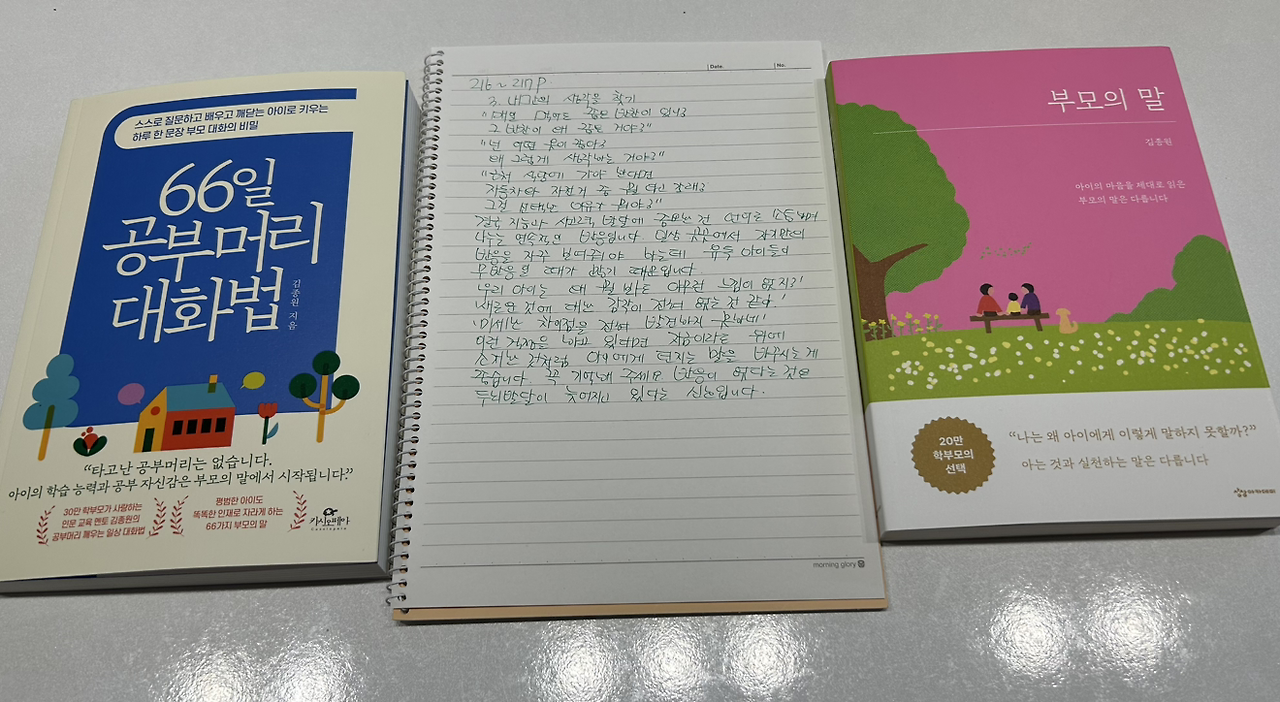 스스로 질문하고 배우고 깨닫는 아이로 키우는
하루 한 문장 부모 대화의 비밀
66일
공부머리
대화법
김종원 지음
“타고난 공부머리는 없습니다.
아이의 학습 능력과 공부 자신감은 부모의 말에서 시작됩니다”
30만 학부모가 사랑하는
인문 교육 멘토 김종원의
공부머리 깨우는 일상 대화법
평범한 아이도
똑똑한 인재로 자라게 하는
66가지 부모의 말
카시오페아
Cassiopeia
Date.
No.
216~217p.
3. 나만의 생각을 찾기
방법이 있니?
그 방법이 왜 좋은 거야?"
"넌 어떤 옷이 좋아?
왜 그렇게 생각하는 거야?"
가야 한다면
자동차와 자전거 중 뭘 타고 갈래?
그걸 선택한 이유가 뭐야?"
결국 지능과 사고력 발달에 중요한 건 언어로
나누는 연속적인 반응입니다. 일상 곳곳에서 자기만의
반응을 자주 보여줘야 하는데 유독 아이들이
무반응일 때가 많기 때문입니다.
'우리 아이는 왜 뭘 봐도 아무런 느낌이 없지?'
'새로운 것에 대한 감각이 전혀 없는 것 같다.'
'미세한 차이점을 전혀 발견하지 못하네'
이런 걱정을 하고 있다면 지금이라도 위에
소개한 것처럼 아이에게 던지는 말을 바꾸시는 게
좋습니다. 꼭 기억해 주세요 반응이 없다는 것은
두뇌발달이 늦어지고 있다는 신호입니다.
morning glory
부모의 말
김종원
아이의 마음을 제대로 읽은
부모의 말은 다릅니다
20만
학부모의
선택
“나는 왜 아이에게 이렇게 말하지 못할까?”
아는 것과 실천하는 말은 다릅니다
상상아카데미